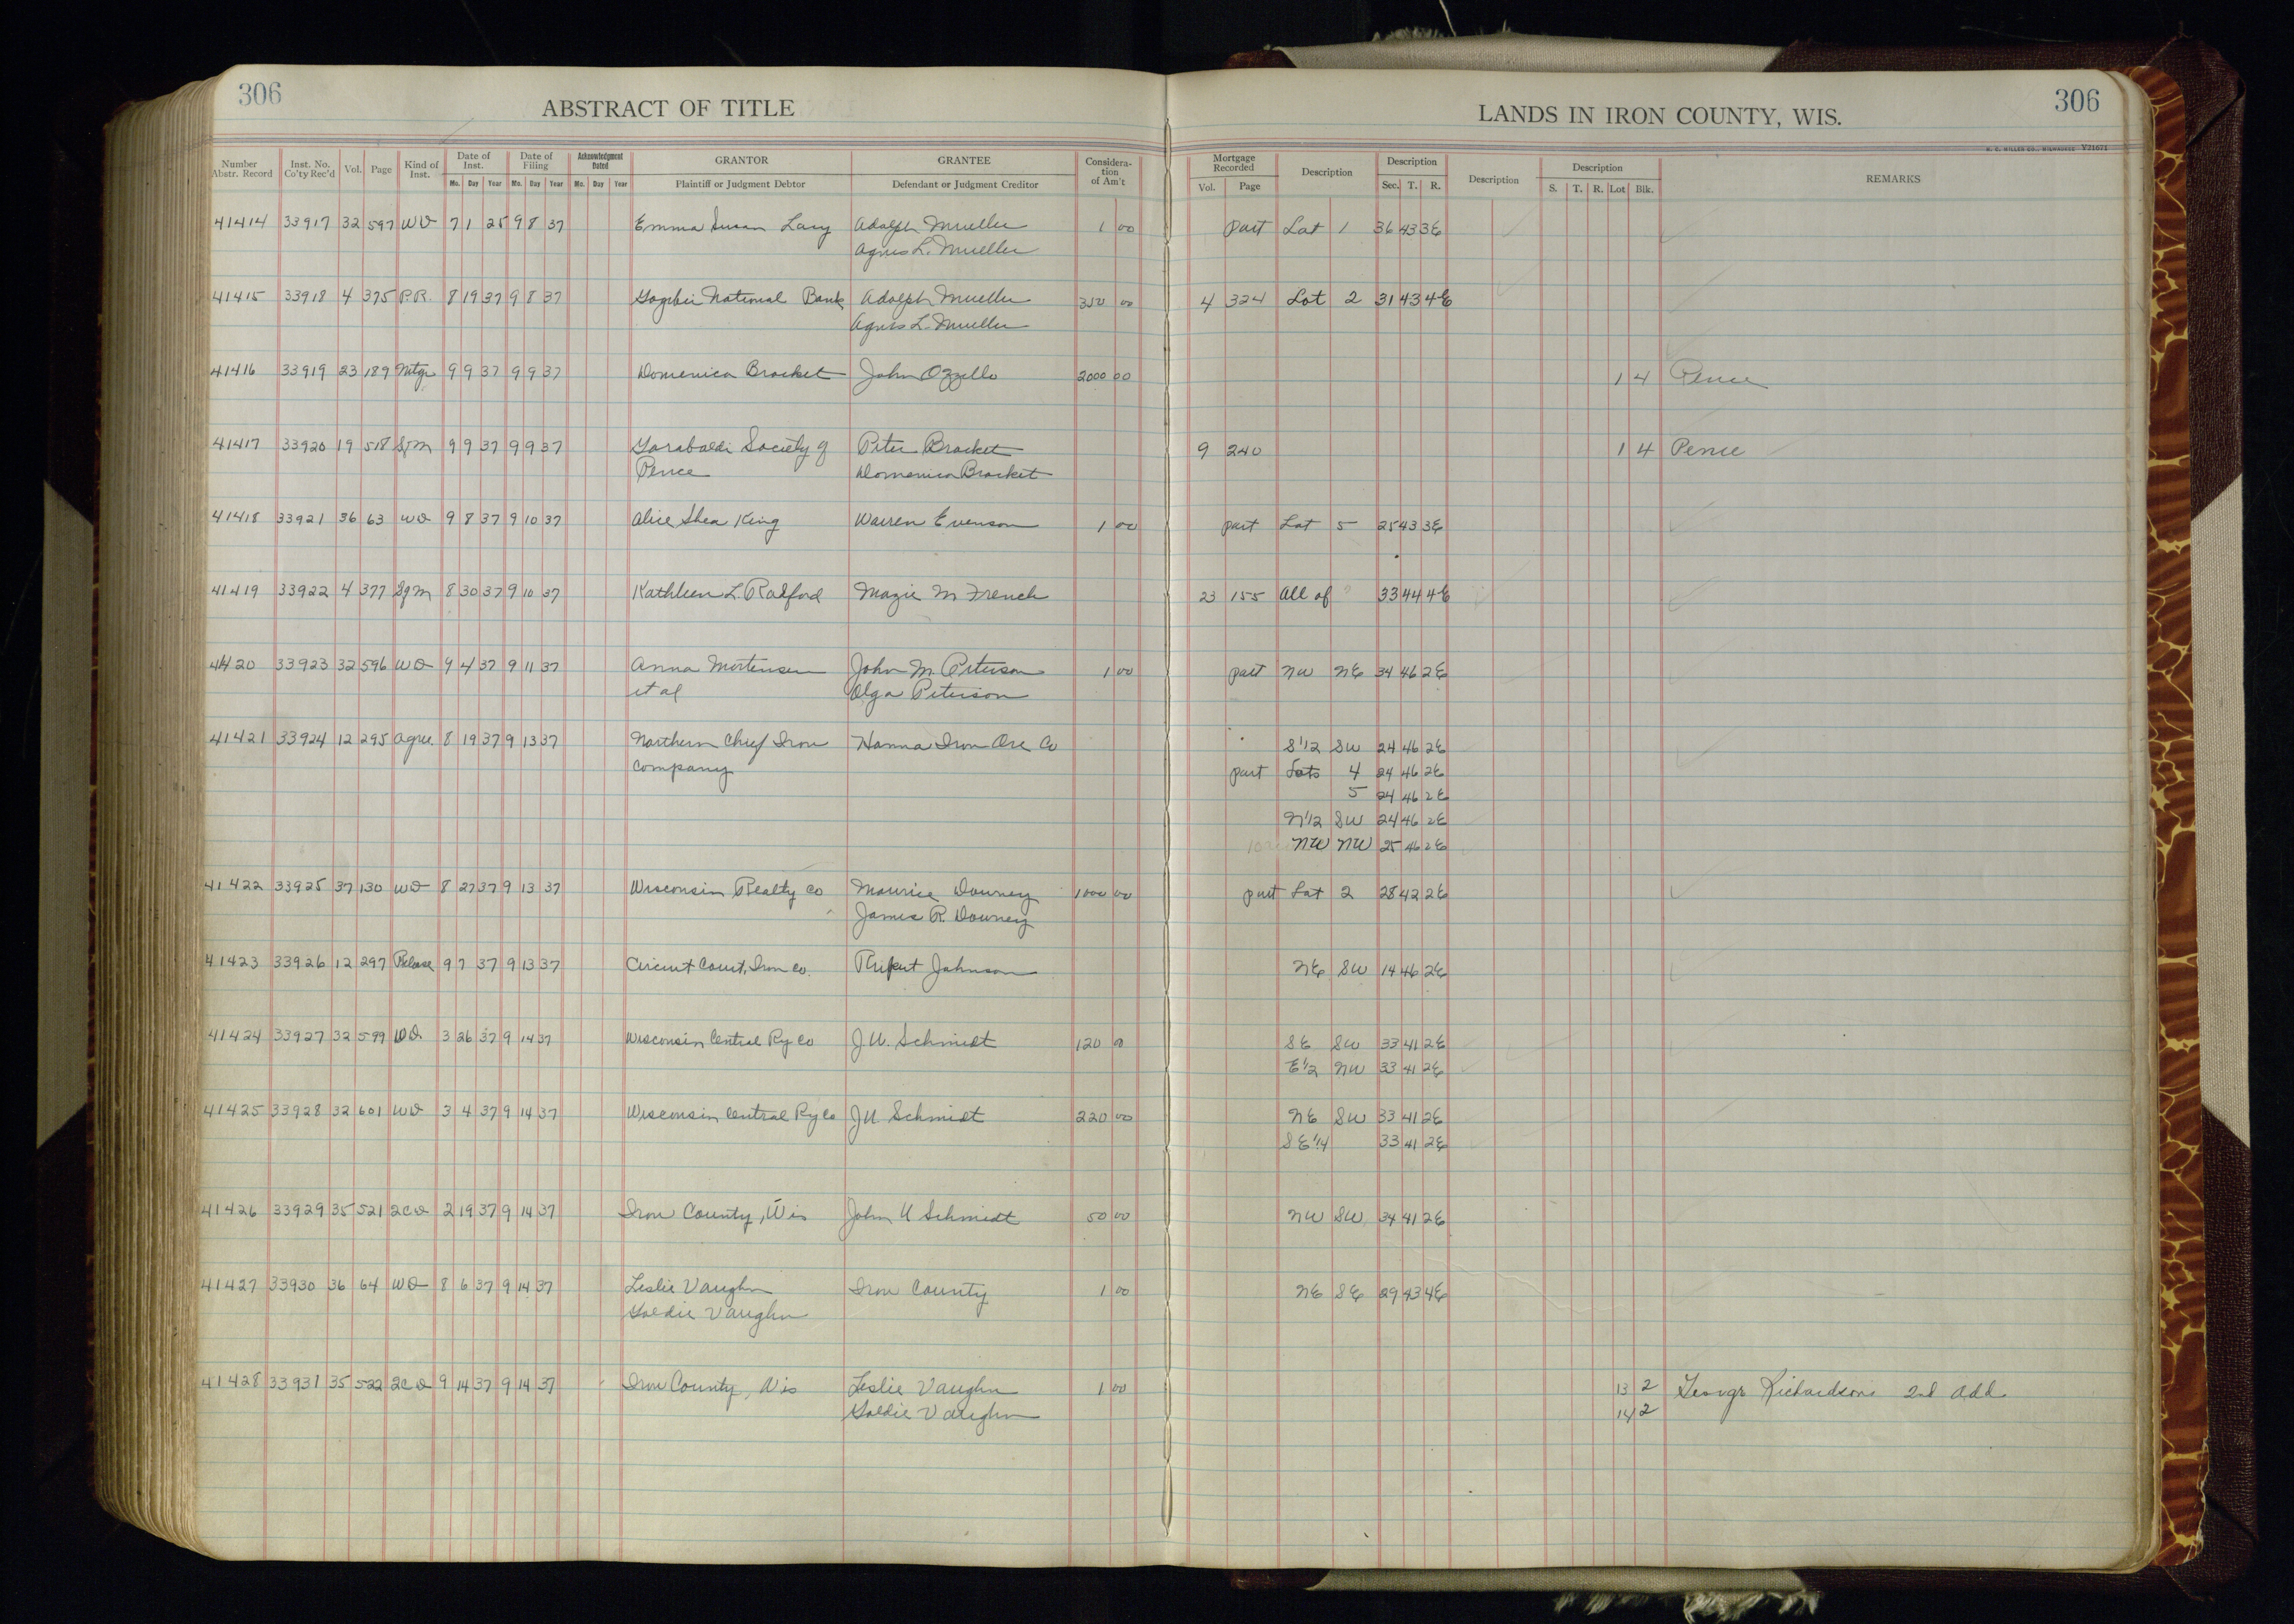 306
ABSTRACT OF TITLE
LANDS IN IRON COUNTY, WIS.
306
H. C. MILLER CO., MILWAUKEE Y21671
Number Abstr. Record Inst. No. Co'ty Rec'd Vol. Page Kind of Inst. Date of Inst. Mo. Day Year Date of Filing Mo. Day Year Acknowledgment Dated Mo. Day Year GRANTOR Plaintiff or Judgment Debtor GRANTEE Defendant or Judgment Creditor Considera-tion of Am't Mortgage Recorded Vol. Page Description Description Sec. T. R. Description Description S. T. R. Lot Blk. REMARKS
41414 33917 32 597 WD 7 1 25 9 8 37 Emma Susan Lacy Adolph Mueller 1 00 part Lot 1 36 43 3E
Agnes L. Mueller
41415 33918 4 375 P.R. 8 19 37 9 8 37 Gogebic National Bank Adolph Mueller 350 00 4 324 Lot 2 31 43 4E
Agnes L. Mueller
41416 33919 23 189 Mtge 9 9 37 9 9 37 Domenica Brocket John Ozzello 2000 00 1 4 Pence
41417 33920 19 518 SfM 9 9 37 9 9 37 Garabaldi Society of Peter Brocket 9 240 1 4 Pence
Pence Domenica Brocket
41418 33921 36 63 WD 9 8 37 9 10 37 Alice Shea King Warren Evenson 1 00 part Lot 5 25 43 3E
41419 33922 4 377 SfM 8 30 37 9 10 37 Kathleen L Radford Mazie M French 23 155 All of 33 44 4E
41420 33923 32 596 WD 9 4 37 9 11 37 Anna Mortensen John M. Peterson 1 00 part NW NE 34 46 2E
et al Olga Peterson
41421 33924 12 295 Agree 8 19 37 9 13 37 Northern Chief Iron Hanna Iron Ore Co S 1/2 SW 24 46 2E
Company part Lots 4 24 46 2E
5 24 46 2E
N 1/2 SW 24 46 2E
NW NW 25 46 2E
41422 33925 37 130 WD 8 27 37 9 13 37 Wisconsin Realty Co Maurice Downey 1000 00 part Lot 2 28 42 2E
James R. Downey
41423 33926 12 297 Release 9 7 37 9 13 37 Circuit Court, Iron Co. Rupert Johnson NE SW 14 46 2E
41424 33927 32 599 WD 3 26 37 9 14 37 Wisconsin Central Ry Co J U. Schmidt 120 00 SE SW 33 41 2E
E 1/2 NW 33 41 2E
41425 33928 32 601 WD 3 4 37 9 14 37 Wisconsin Central Ry Co J U. Schmidt 220 00 NE SW 33 41 2E
SE 1/4 33 41 2E
41426 33929 35 521 2CD 2 19 37 9 14 37 Iron County, Wis John U Schmidt 50 00 NW SW 34 41 2E
41427 33930 36 64 WD 8 6 37 9 14 37 Leslie Vaughn Iron County 1 00 NE SE 29 43 4E
Goldie Vaughn
41428 33931 35 522 2CD 9 14 37 9 14 37 Iron County, Wis Leslie Vaughn 1 00 13 2 George Richardsons 2nd Add.
Goldie Vaughn 14 2